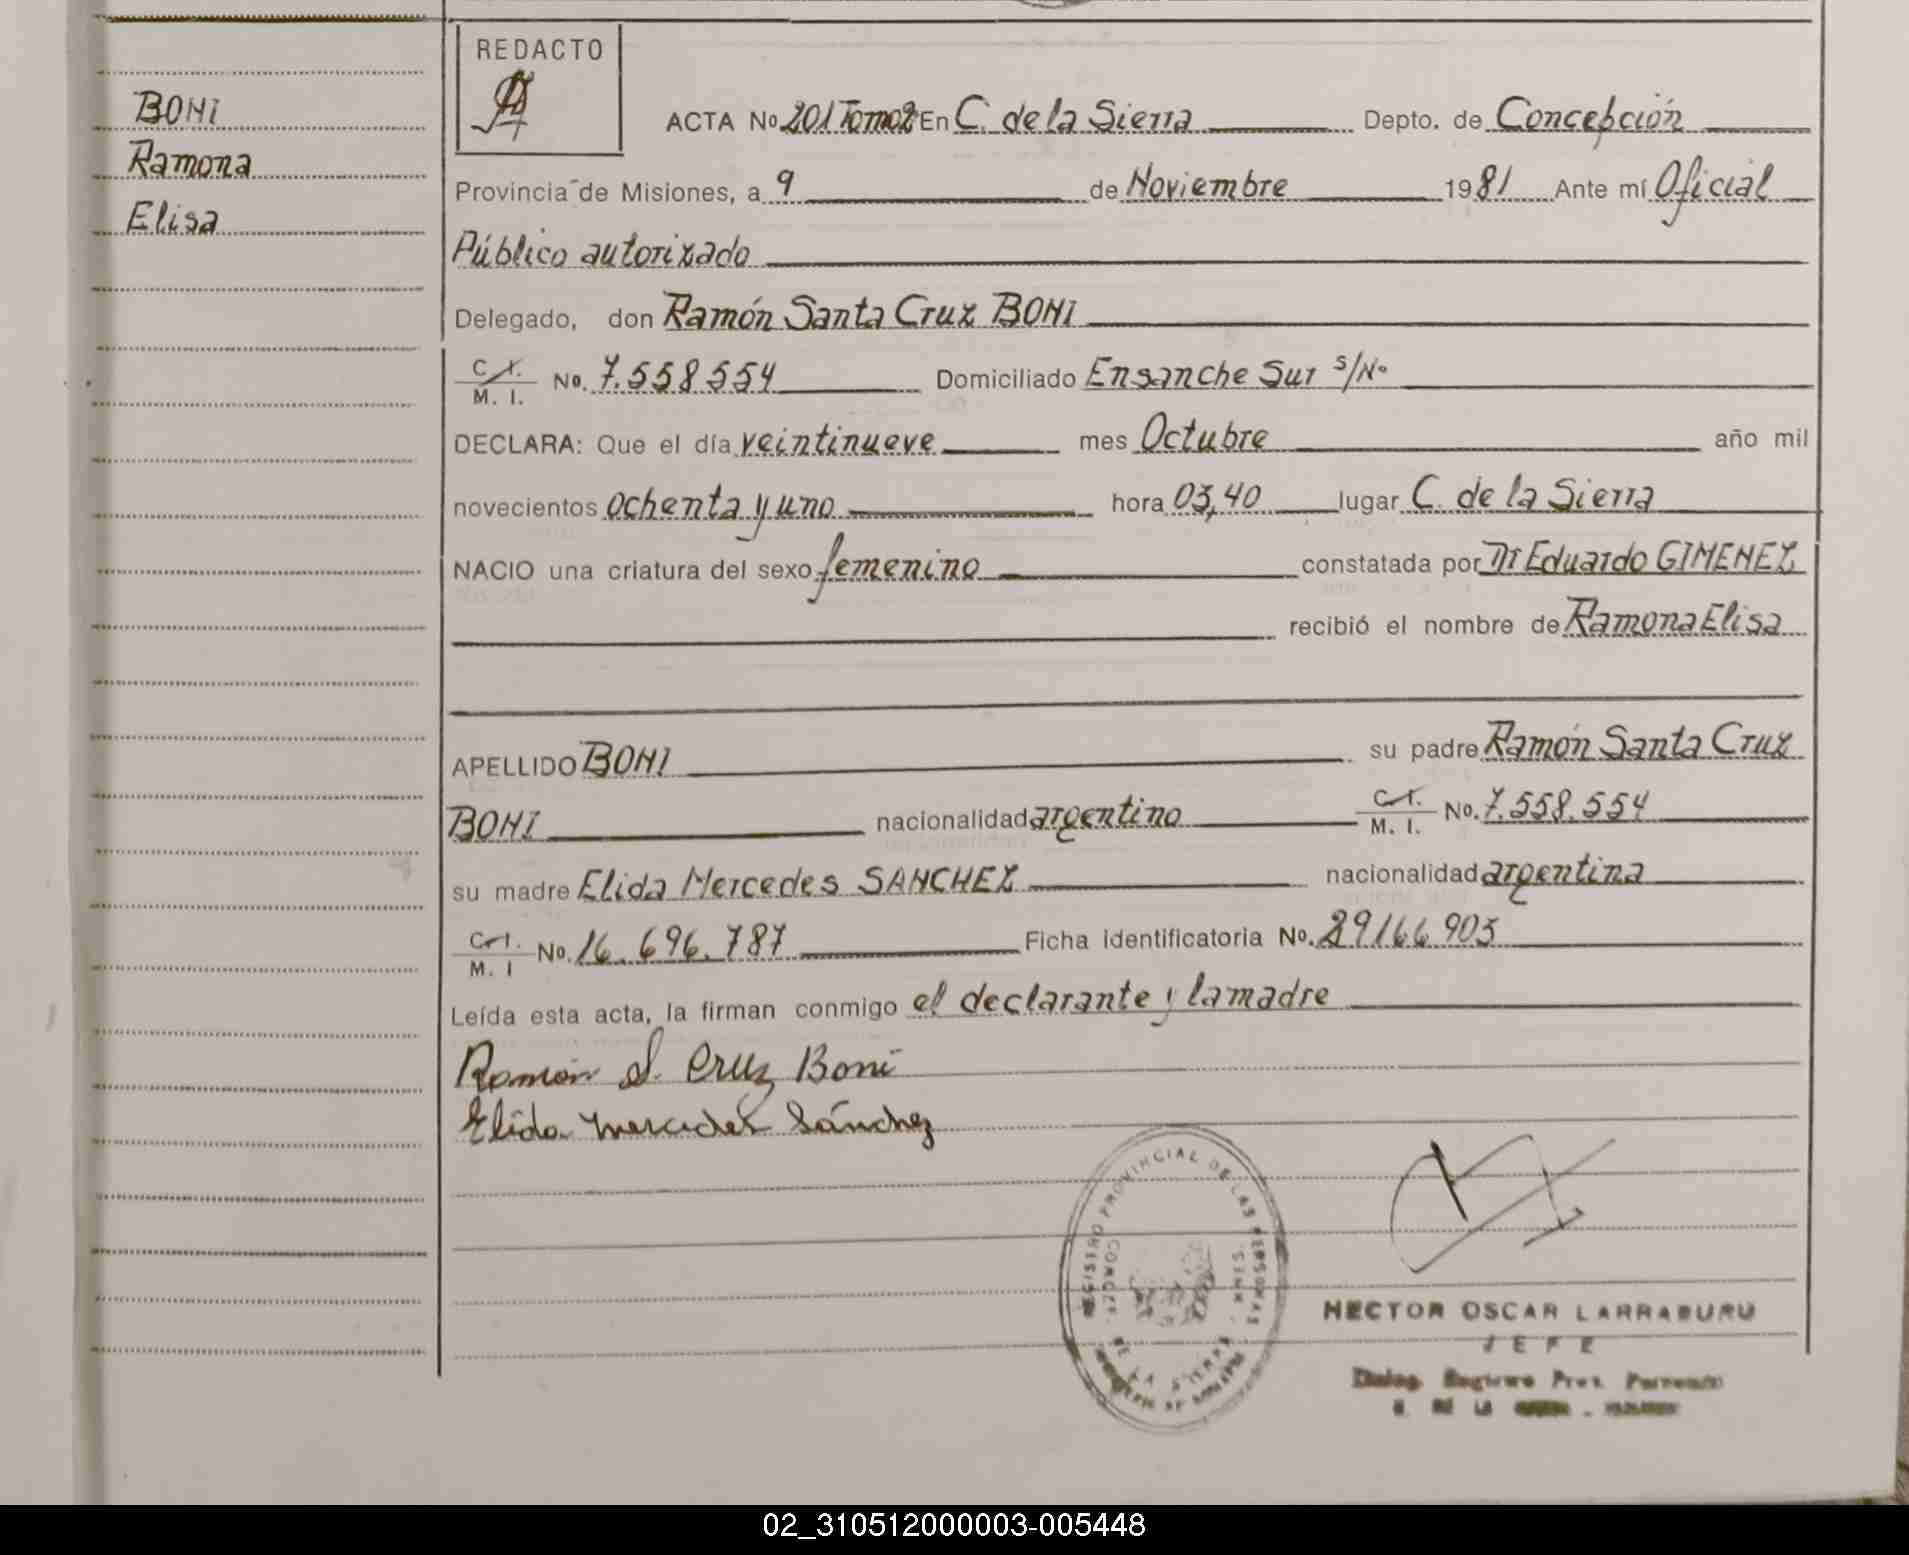 BONI
Ramona
Elisa
REDACTO
ACTA No 201 Tomo 2 En C. de la Sierra Depto. de Concepción
Provincia de Misiones, a 9 de Noviembre 1981 Ante mí Oficial
Público autorizado
Delegado, don Ramón Santa Cruz BONI
C. I. M. I. No. 7.558.554 Domiciliado Ensanche Sur s/No
DECLARA: Que el día veintinueve mes Octubre año mil
novecientos ochenta y uno hora 03,40 lugar C. de la Sierra
NACIO una criatura del sexo femenino constatada por Dr Eduardo GIMENEZ
recibió el nombre de Ramona Elisa
APELLIDO BONI su padre Ramón Santa Cruz
BONI nacionalidad argentino C. I. M. I. No. 7.558.554
su madre Elida Mercedes SANCHEZ nacionalidad argentina
C. I. M. I No. 16.696.787 Ficha identificatoria No. 29166903
Leída esta acta, la firman conmigo el declarante y la madre
Ramón S. Cruz Boni
Elida Mercedes Sánchez
REGISTRO PROVINCIAL DE LAS PERSONAS
CONCEPC. DE LA SIERRA MNES.
HECTOR OSCAR LARRABURU
JEFE
02_310512000003-005448